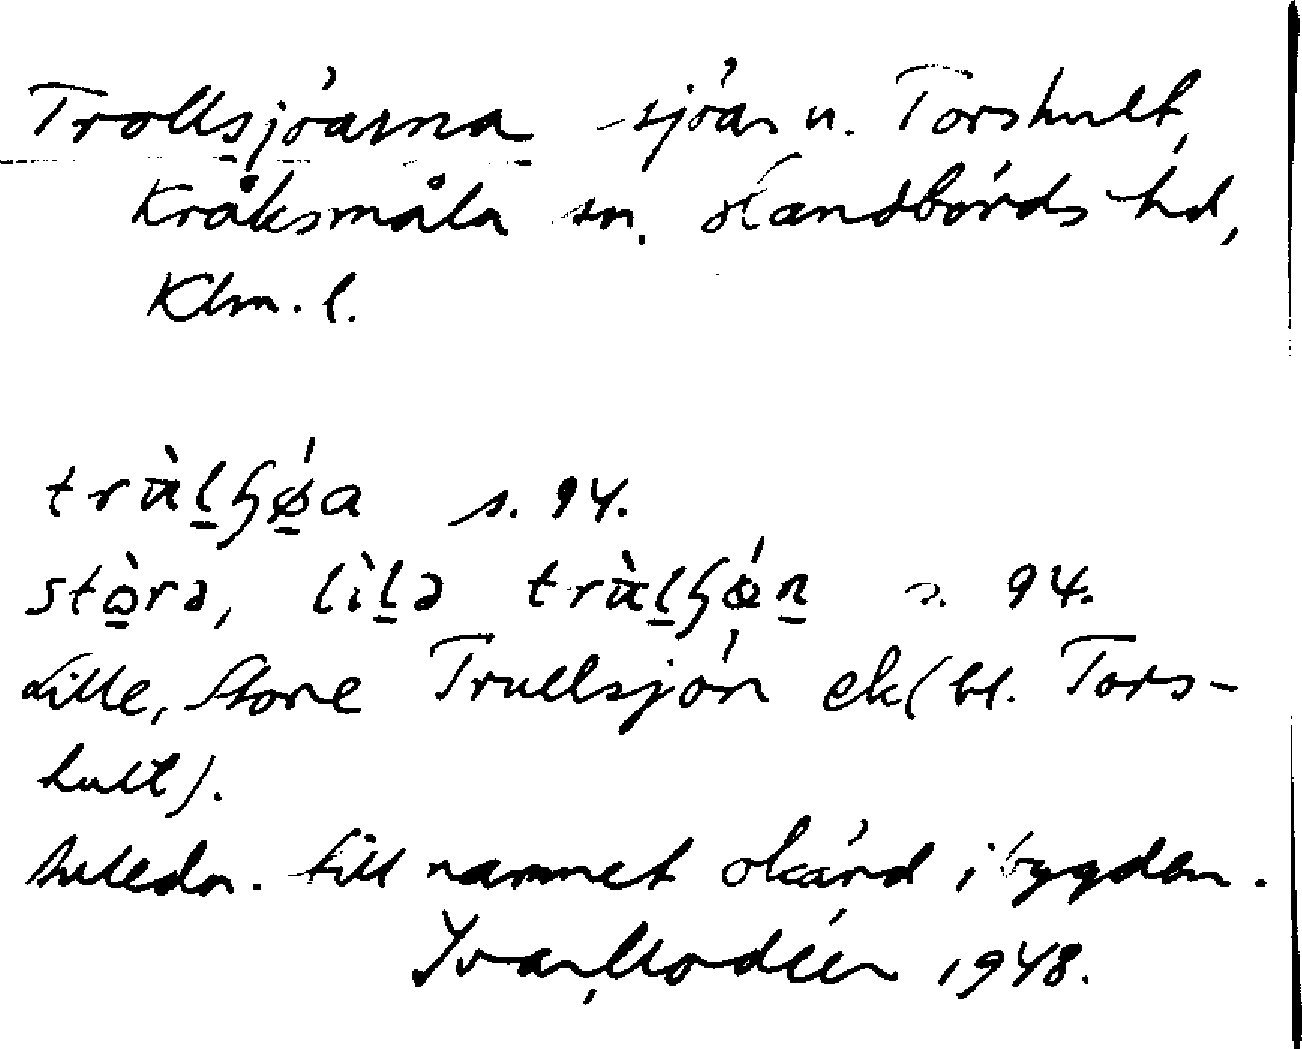 Trollsjöarna sjöar u. Torshult,
Kråksmåla sn. Handbörds hd,
Klm. l.
s. 94.
s. 94.
Lille, Store Trullsjön ek (bl. Tors-
hult).
Anledn. till namnet okänd i bygden.
Ivar Modéer 1948.